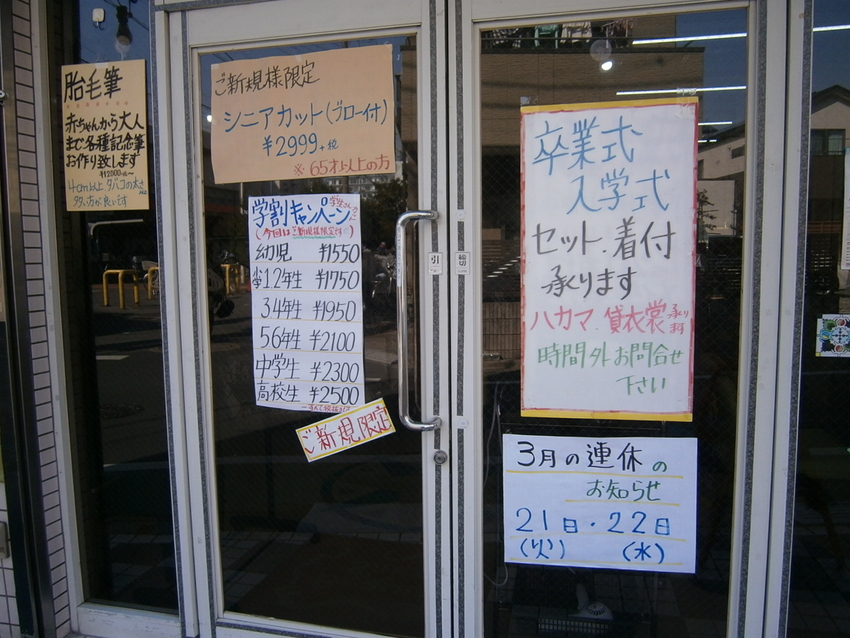 胎毛筆
赤ちゃんから大人
まで各種記念筆
お作り致します
¥12000~
4cm以上 タバコの太さ
タタい方が良いです
ご新規様限定
シニアカット(ブロー付)
¥2999+税
※65才以上の方
学割キャンペーン
(今回はご新規様限定です)
幼児 ¥1550
小学12年生 ¥1750
34年生 ¥1950
56年生 ¥2100
中学生 ¥2300
高校生 ¥2500
ご新規限定
引
締切
卒業式
入学式
セット.着付
承ります
ハカマ 貸衣裳 承ります
時間外お問合せ
下さい
3月の連休の
お知らせ
21日・22日
(火) (水)